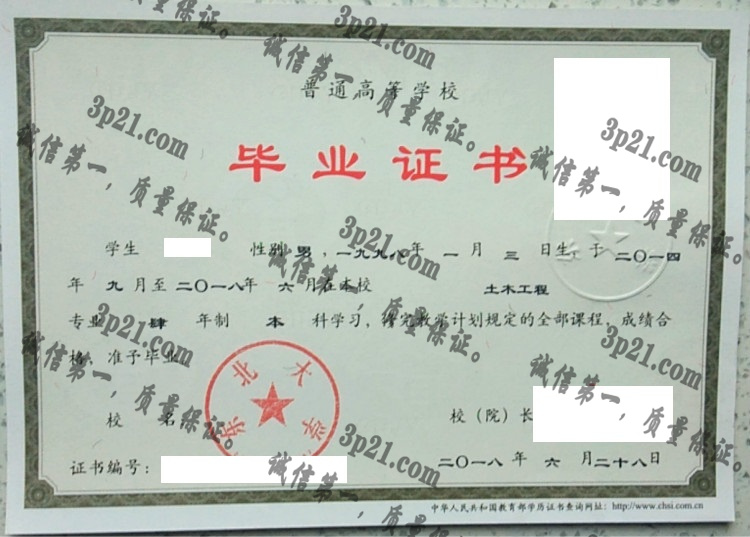 普通高等学校
毕业证书
学生 性别 男，一九九八年 一 月 三 日生，于 二〇一四
年 九 月至 二〇一八年 六 月在本校 土木工程
专业 肆 年制 本 科学习，修完教学计划规定的全部课程，成绩合
格，准予毕业。
东北大学
校 名： 校（院）长
证书编号： 二〇一八 年 六 月二十八日
中华人民共和国教育部学历证书查询网址：http://www.chsi.com.cn
质量保证。
3p21.com
诚信第一，质量保证。
3p21.com
诚信第一，质量保证。
3p21.com
诚信第一，质量保证。
3p21.com
诚信第一，质量保证。
3p21.com
诚信第一，质量保证。
3p21.com
诚信第一，质量保证。
3p21.com
诚信第一，质量保证。
3p21.com
诚信第一，质量保证。